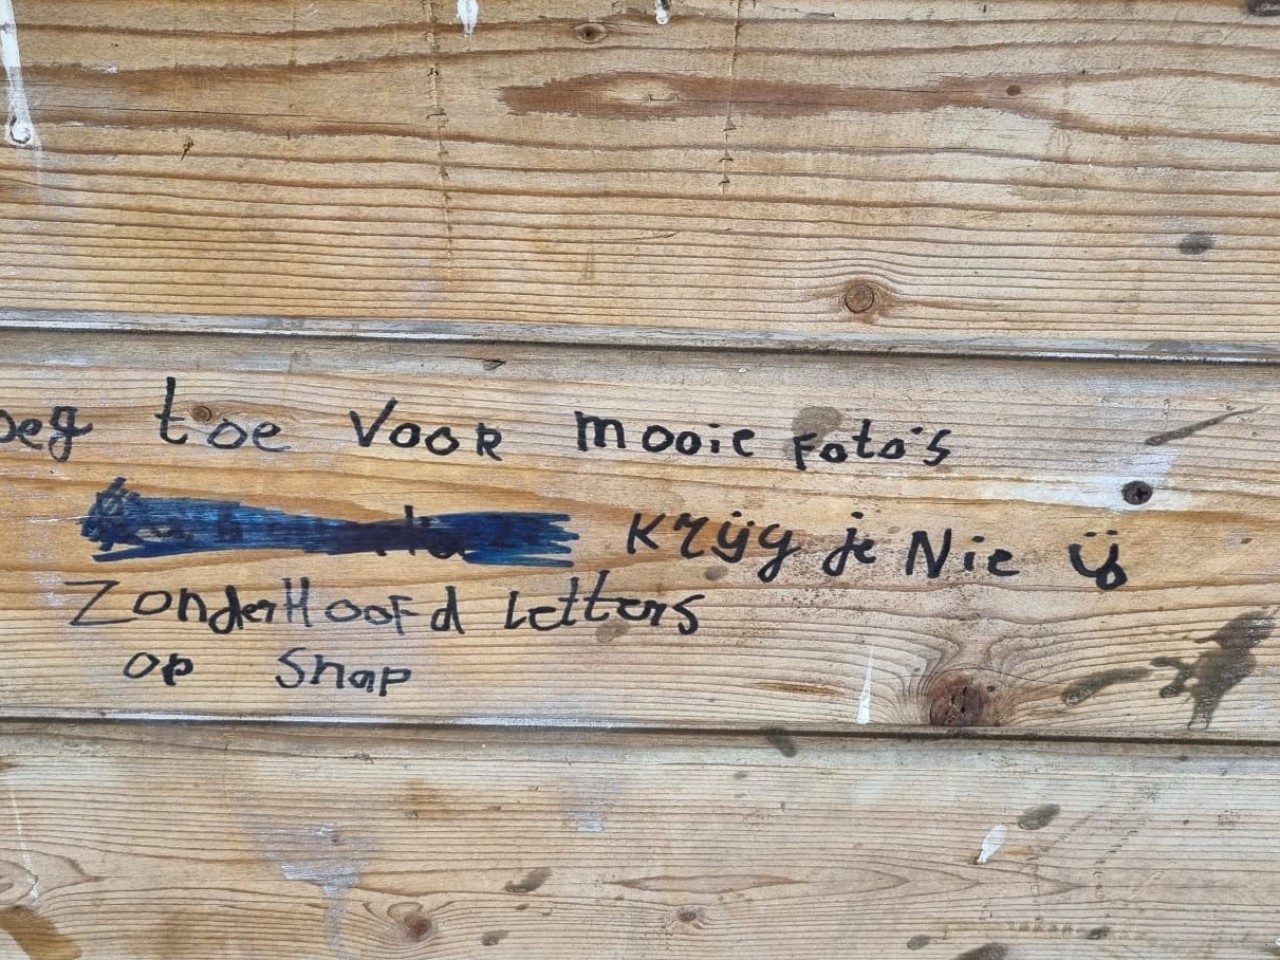 oeg toe Voor mooie Foto's
Krijg je Nie
ZonderHoofd Letters
op Snap